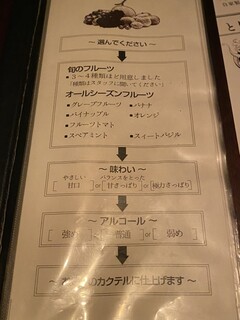 ～ 選んでください ～
旬のフルーツ
• 3～4種類ほど用意しました
（種類はスタッフに聞いてください）
オールシーズンフルーツ
• グレープフルーツ • バナナ
• パイナップル • オレンジ
• フルーツトマト
• スペアミント • スイートバジル
～ 味わい ～
やさしい バランスをとった
[ 甘口 ] or [ 甘さっぱり ] or [ 極力さっぱり ]
～ アルコール ～
[ 強め ] [ 普通 ] or [ 弱め ]
のカクテルに仕上げます ～